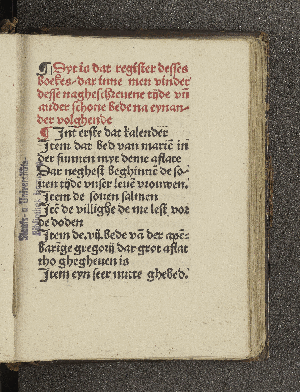 ¶ Dyt is dat register desses
boekes. dar inne men vinder
desse nagheschreuene tyde vñ
ander schone bede na eynan-
der volghende
¶ Int erste dat kalender
Item dat bed van marien in
der sunnen myt deme aflate
Dar neghest beghinnē de so-
uen tyde vnser leuē vrouwen.
Item de souen salmen
Itē de villighe de me lest vor
de doden
Item de .vij. bede vā der apē-
barige gregorij dar grot aflat
tho ghegheuen is
Item eyn seer nutte ghebed.